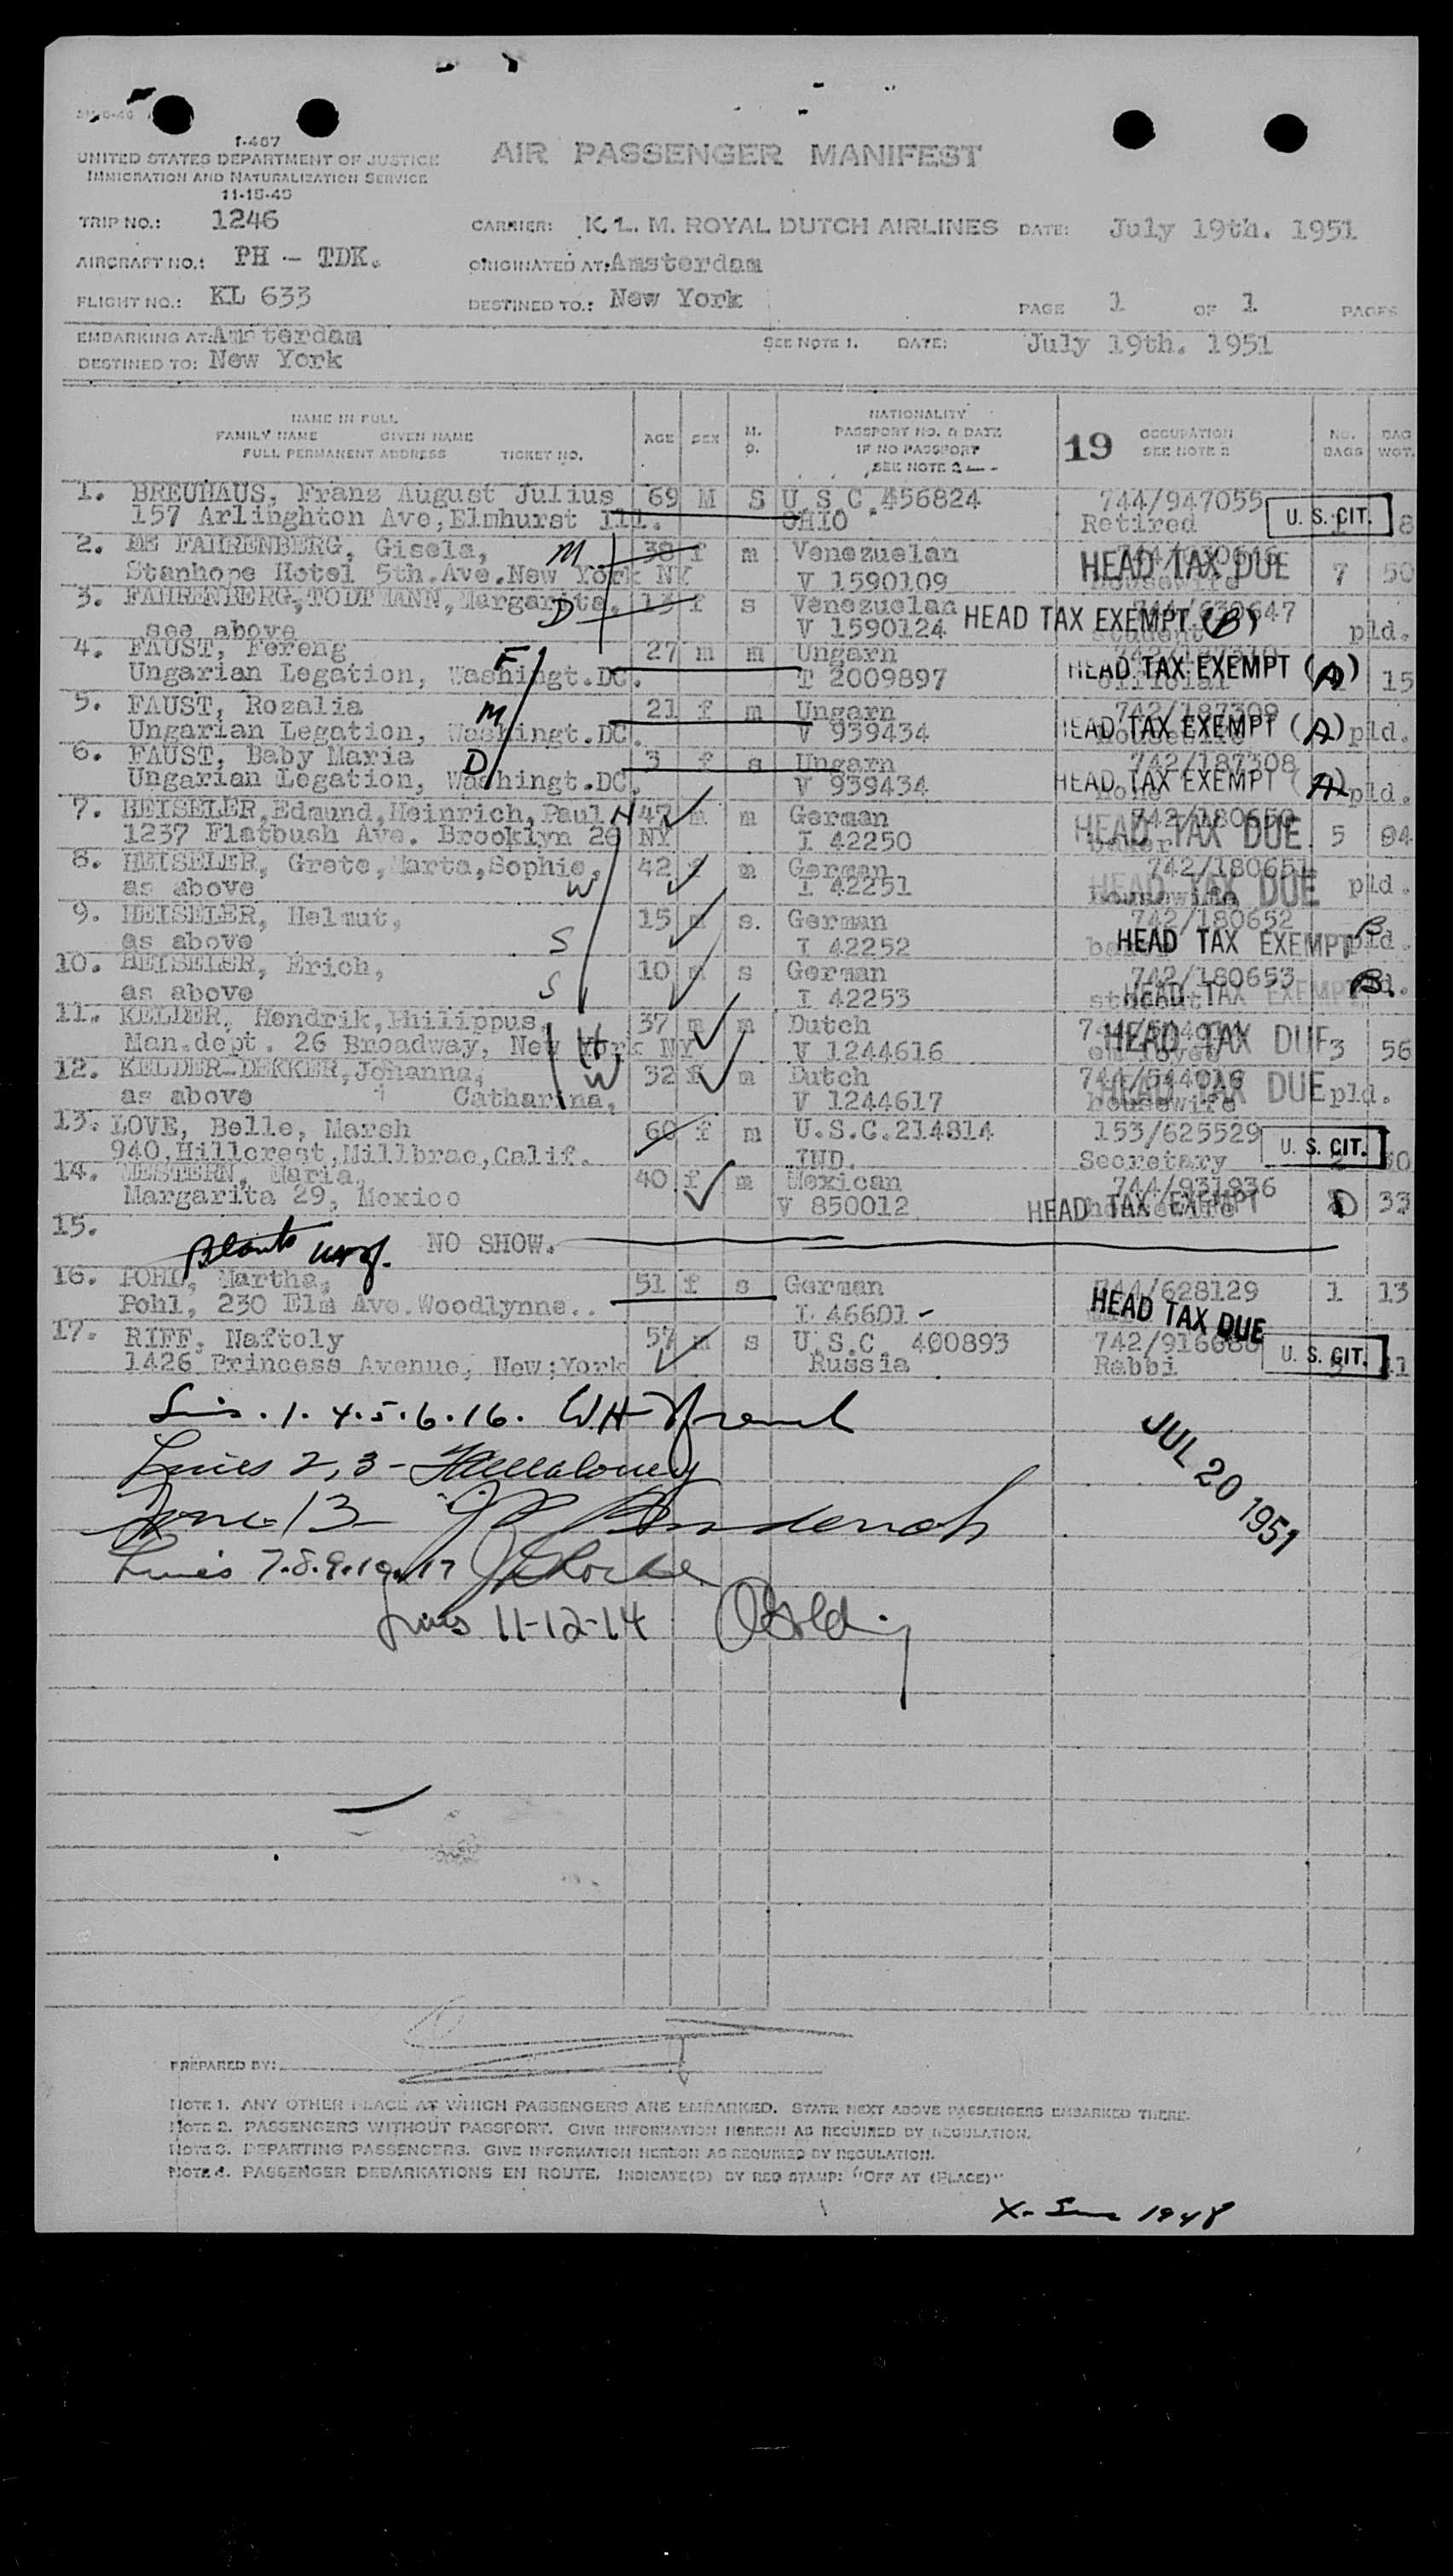 I-467
UNITED STATES DEPARTMENT OF JUSTICE
IMMIGRATION AND NATURALIZATION SERVICE
11-15-45
AIR PASSENGER MANIFEST
TRIP NO.: 1246 CARRIER: K.L.M. ROYAL DUTCH AIRLINES DATE: July 19th. 1951
AIRCRAFT NO.: PH - TDK. ORIGINATED AT: Amsterdam
FLIGHT NO.: KL 633 DESTINED TO.: New York PAGE 1 OF 1 PAGES
EMBARKING AT: Amsterdam SEE NOTE 1. DATE: July 19th. 1951
DESTINED TO: New York
NAME IN FULL
FAMILY NAME GIVEN NAME
FULL PERMANENT ADDRESS TICKET NO.
AGE SEX M. S.
NATIONALITY
PASSPORT NO. & DATE
IF NO PASSPORT
SEE NOTE 2
19 OCCUPATION
SEE NOTE 2
NO. BAGS
BAG WGT.
1. BREUHAUS, Franz August Julius 69 M S U.S.C. 456824 744/947055
157 Arlinghton Ave, Elmhurst Ill. OHIO Retired U. S. CIT. 8
2. DE FAHRENBERG, Gisela, M 38 f m Venezuelan HEAD TAX DUE 7 50
Stanhope Hotel 5th. Ave. New York NY V 1590109
3. FAHRENBERG, TODTMANN, Margarita, D 13 f s Venezuelan HEAD TAX EXEMPT (B)
see above V 1590124 student pld.
4. FAUST, Fereng F 27 m m Ungarn HEAD TAX EXEMPT (A)
Ungarian Legation, Washingt.DC. T 2009897 official 15
5. FAUST, Rozalia M 21 f m Ungarn 742/187309
Ungarian Legation, Washingt.DC. V 939434 HEAD TAX EXEMPT (A) pld.
6. FAUST, Baby Maria D 3 f s Ungarn 742/187308
Ungarian Legation, Washingt.DC. V 939434 HEAD TAX EXEMPT (A) pld.
7. HEISELER, Edmund, Heinrich, Paul H 47 m m German 742/180650
1237 Flatbush Ave. Brooklyn 26 NY I 42250 HEAD TAX DUE 5 94
8. HEISELER, Grete, Marta, Sophie, W 42 f m German 742/180651
as above I 42251 housewife HEAD TAX DUE pld.
9. HEISELER, Helmut, S 15 m s. German 742/180652
as above I 42252 HEAD TAX EXEMPT B pld.
10. HEISELER, Erich, S 10 m s German 742/180653
as above I 42253 student HEAD TAX EXEMPT B.
11. KELDER, Hendrik, Philippus, H 37 m m Dutch HEAD TAX DUE
Man.dept. 26 Broadway, New York NY V 1244616 3 56
12. KELDER-DEKKER, Johanna, W 32 f m Dutch 744/544016
as above Catharina, V 1244617 housewife HEAD TAX DUE pld.
13. LOVE, Belle, Marsh 60 f m U.S.C. 214814 153/625529
940, Hillcrest, Millbrae, Calif. IND. Secretary U. S. CIT.
14. WESTERN, Maria, 40 f m Mexican 744/931936
Margarita 29, Mexico V 850012 HEAD TAX EXEMPT D 33
15.
NO SHOW.
16. POHL, Martha, 51 f s German 744/628129 1 13
Pohl, 230 Elm Ave. Woodlynne.. I 46601 HEAD TAX DUE
17. RIFF, Naftoly 57 m s U.S.C. 400893
1426 Princess Avenue, New York Russia Rabbi U. S. CIT.
1. 4. 5. 6. 16.
Lines 2, 3 -
JUL 20 1951
Line 13
Lines 7. 8. 9. 10. 17
Lines 11-12-14
PREPARED BY:
NOTE 1. ANY OTHER PLACE AT WHICH PASSENGERS ARE EMBARKED. STATE NEXT ABOVE PASSENGERS EMBARKED THERE.
NOTE 2. PASSENGERS WITHOUT PASSPORT. GIVE INFORMATION HEREON AS REQUIRED BY REGULATION.
NOTE 3. DEPARTING PASSENGERS. GIVE INFORMATION HEREON AS REQUIRED BY REGULATION.
NOTE 4. PASSENGER DEBARKATIONS EN ROUTE. INDICATE(D) BY RED STAMP: "OFF AT (PLACE)"
1948